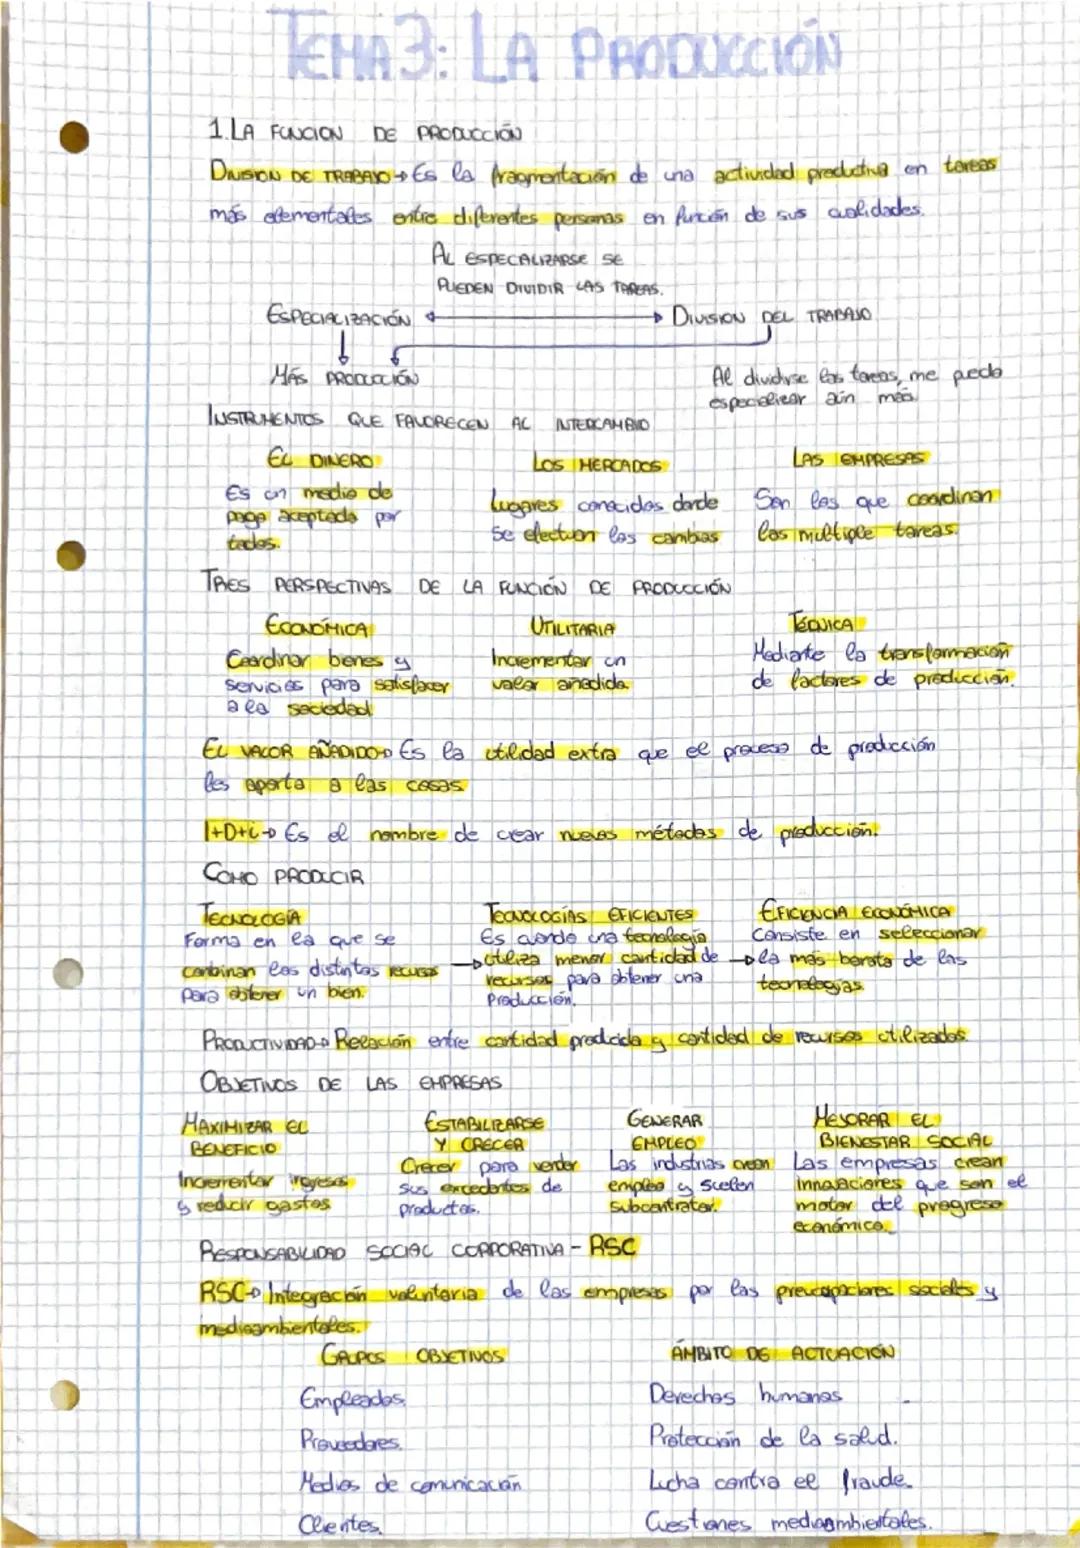 TEMA 3: LA PRODUCCIÓN
1. LA FUNCION DE PRODUCCIÓN
DIVISION DE TRABAJO → Es la fragmentación de una actividad productiva en tareas
más elementales entre diferentes personas en función de sus cualidades.
AL ESPECALIZARSE SE
PUEDEN DIVIDIR LAS TAREAS.
ESPECIALIZACIÓN ↔ DIVISION DEL TRABAJO
MÁS PRODUCCIÓN
Al dividirse las tareas, me puedo
especializar aún más
INSTRUMENTOS QUE FAVORECEN AL INTERCAMBIO
EL DINERO
Es un medio de
pago aceptado por
todos.
LOS MERCADOS
Lugares conocidos donde
se efectuan los cambios
LAS EMPRESAS
Son las que coordinan
las multiple tareas.
TRES PERSPECTIVAS DE LA FUNCIÓN DE PRODUCCIÓN
ECONÓMICA
Coordinar bienes y
servicios para satisfacer
a la sociedad
UTILITARIA
Incrementar un
valor añadido
TÉCNICA
Mediante la transformación
de factores de producción.
EL VALOR AÑADIDO → Es la utilidad extra que el proceso de producción
les aporta a las cosas
I+D+i → Es el nombre de crear nuevos métodos de producción.
COMO PRODUCIR
TECNOLOGÍA
Forma en la que se
combinan los distintos recursos
para obtener un bien.
TECNOLOGÍAS EFICIENTES
Es cuando una tecnología
→ utiliza menor cantidad de
recursos para obtener una
Producción.
EFICIENCIA ECONÓMICA
Consiste en seleccionar
→ la más barata de las
tecnologías.
PRODUCTIVIDAD → Relación entre cantidad producida y cantidad de recursos utilizados.
OBJETIVOS DE LAS EMPRESAS
MAXIMIZAR EL
BENEFICIO
Incrementar ingresos
y reducir gastos
ESTABILIZARSE
Y CRECER
Crecer para vender
sus excedentes de
productos.
GENERAR
EMPLEO
Las industrias crean
empleo y suelen
subcontratar.
MEJORAR EL
BIENESTAR SOCIAL
Las empresas crean
innovaciones que son el
motor del progreso
económico.
RESPONSABILIDAD SOCIAL CORPORATIVA - RSC
RSC → Integración voluntaria de las empresas por las preocupaciones sociales y
medioambientales.
GRUPOS OBJETIVOS
Empleados.
Proveedores.
Medios de comunicación
Clientes.
ÁMBITO DE ACTUACIÓN
Derechos humanos
Protección de la salud.
Lucha contra el fraude.
Cuestiones medioambientales.